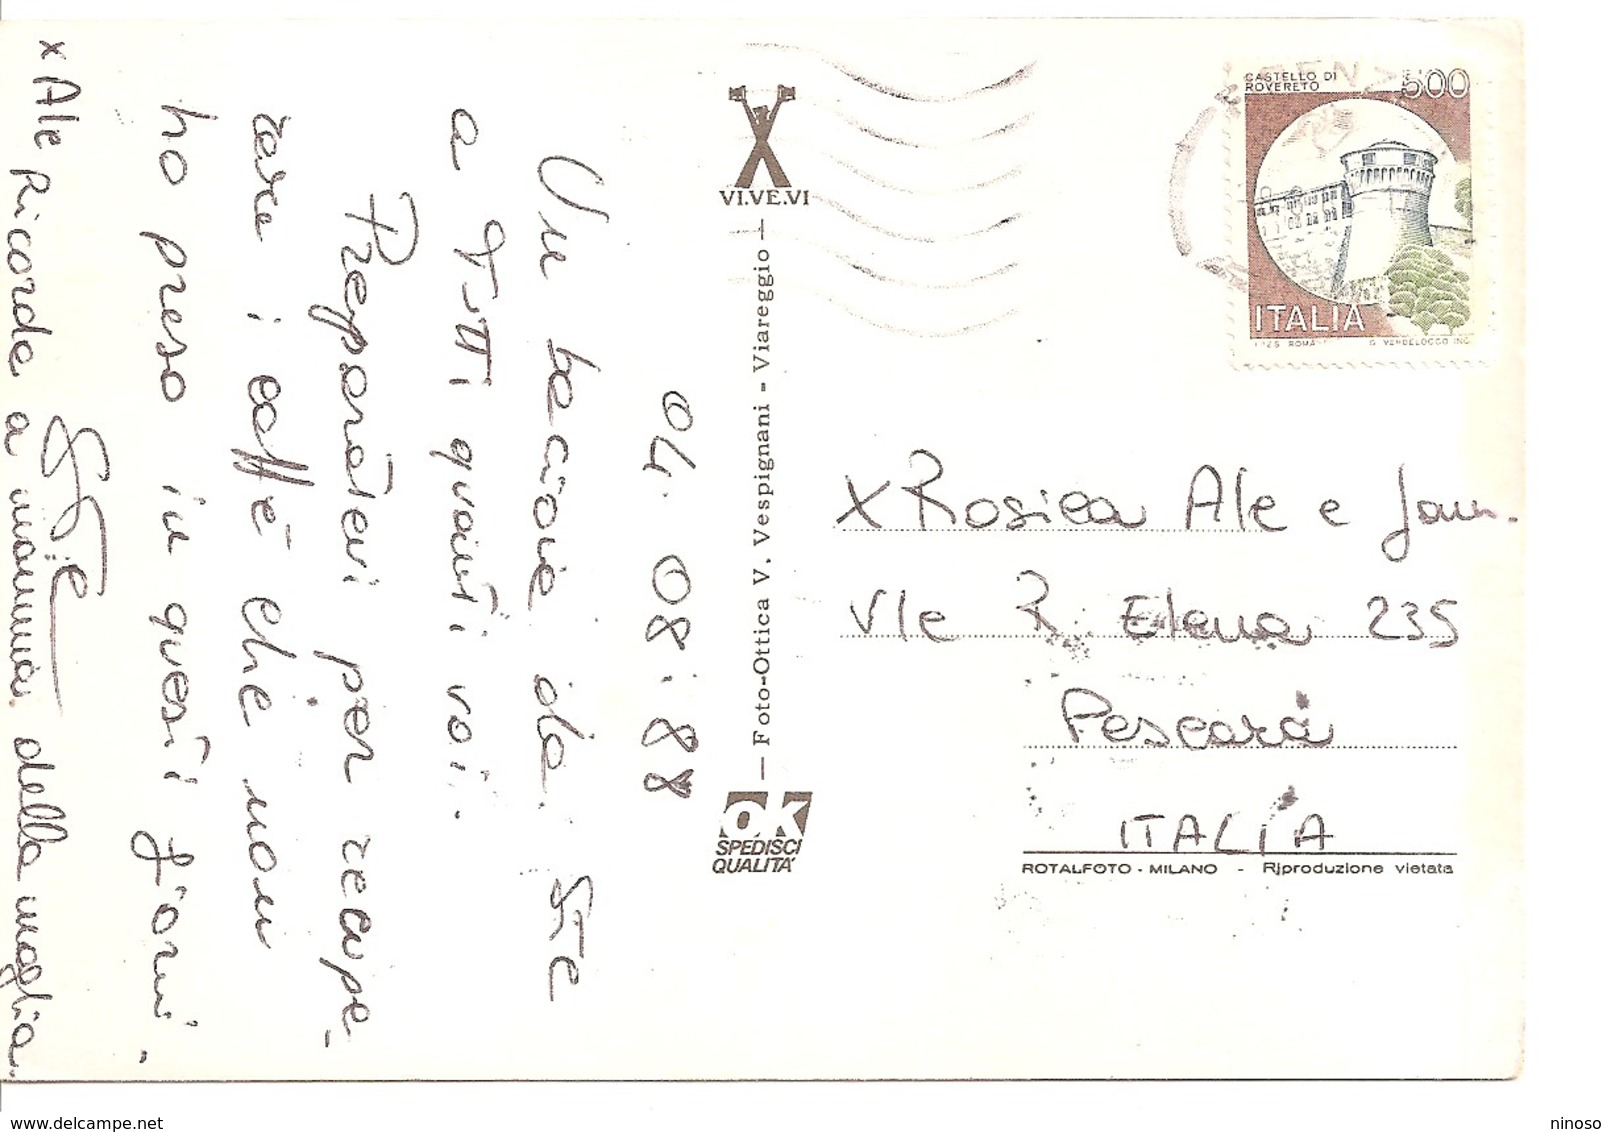 04.08.88
Un bacione da Ste
a tutti quanti voi.
Preparatevi per recupe-
rare i caffè che non
ho preso in questi giorni.
Ste
x Ale Ricorda a mamma della maglia.
VI.VE.VI
Foto-Ottica V. Vespignani - Viareggio
OK
SPEDISCI
QUALITA'
CASTELLO DI
ROVERETO
500
ITALIA
ROMA
G. VERDELOCCO INC.
X Rosica Ale e fam.
Vle R. Elena 235
Pescara
ITALIA
ROTALFOTO - MILANO - Riproduzione vietata
www.delcampe.net
ninoso